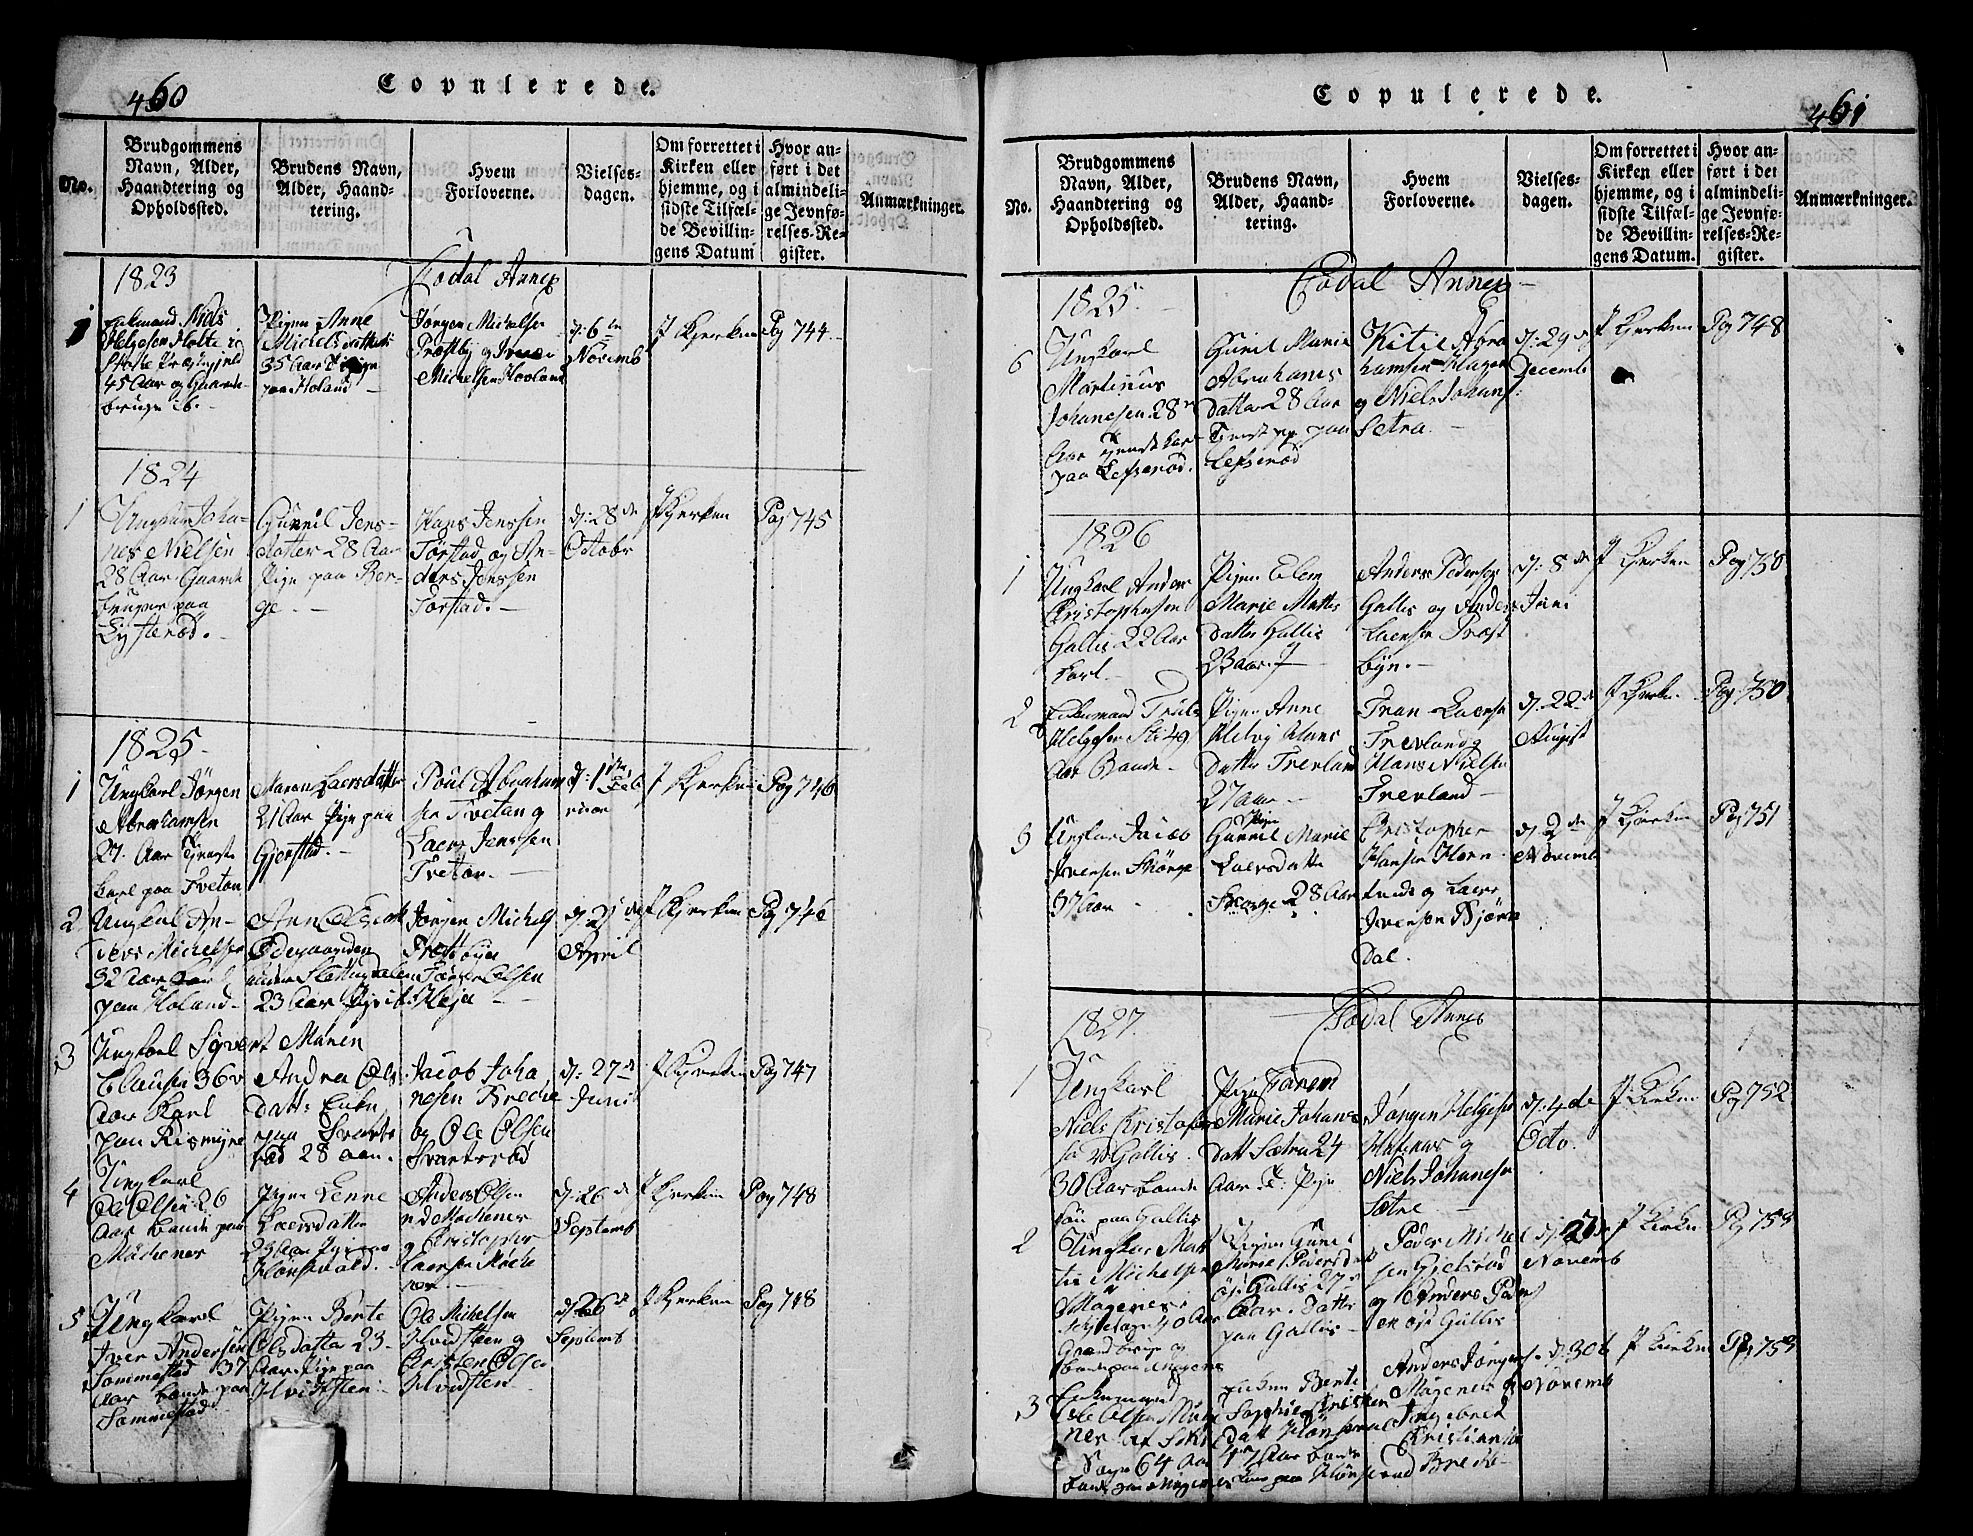 460
Copulerede.
No.
Brudgommens
Navn, Alder,
Haandtering og
Opholdssted.
Brudens Navn,
Alder, Haand-
tering.
Hvem
Forloverne.
Vielses-
dagen.
Om forrettet i
Kirken eller
hjemme, og i
sidste Tilfæl-
de Bevillin-
gens Datum
Hvor an-
ført i det
almindeli-
ge Jevnfø-
relses-Re-
gister.
Anmærkninger.
1823
Todal Annex
1
Enkemand Niels
Helgesen Holte i
45 Aar og Gaard-
bruger ib.
Pigen Anne
Michelsdatter
35 Aar Pige
paa Holand
Jørgen Michelsen
Præstby og Iver
Michelsen Hovland
d: 6te
Novemb
I Kjerken
Pag 744
1824
1
Ungkarl Joha-
nes Nielsen
28 Aar Gaard
bruger paa
Lysterød.
Gunnil Jens-
datter 28 Aar
Pige paa Ber-
ge.
Hans Jenssen
Torstad og An-
ders Jenssen
Torstad.
d: 28de
Octobr
I Kjerken
Pag 745
1825
1
Ungkarl Jørgen
Abrahamsen
27 Aar Tjeneste
karl paa Tvetan
Maren Laersdatter
21 Aar Pige paa
Gjerstad.
Poul Abraham
sen Tvetan og
Laers Jenssen
Tvetan.
d: 1ste Feb
ruar
I Kjerken
Pag 746
2
Ungkarl An-
ders Michelsen
32 Aar Karl
paa Holand
Ødegaarden
under
23 Aar Pige ib.
Jørgen Michels
Præstbyn
Olsen
Heja
d: 21de
April
I Kjerken
Pag 746
3
Ungkarl Syvert
Clausen 36
Aar Karl
paa Rismyre
Maren
Andrea Ols
datts Enke
paa Svarts
rød 28 aar.
Jacob Joha
nesen Breche
og Ole Olsen
Svartsrød
d: 27de
Juni
I Kjerken
Pag 747
4
Ungkarl
Ole Olsen 26
Aar baade paa
Møchener
Pigen Lenne
Laersdatter
23 Aar Pige
Hønsevald.
Anders Olsen
Møchener
og Christopher
Laersen Møche
ner
d: 26de
Septemb
I Kjerken
Pag 748
5
Ungkarl
Iver Andersen
Sommestad 37
Aar baade paa
Sammestad
Pigen Berte
Olsdatter 23
Aar Pige paa
Hvidsten
Ole Michelsen
Hvidsteen og
Christen Olsen
Hvidsten
d: 26de
Septemb
I Kjerken
Pag 748
461
Copulerede.
No.
Brudgommens
Navn, Alder,
Haandtering og
Opholdssted.
Brudens Navn,
Alder, Haand-
tering.
Hvem
Forloverne.
Vielses-
dagen.
Om forrettet i
Kirken eller
hjemme, og i
sidste Tilfæl-
de Bevillin-
gens Datum.
Hvor an-
ført i det
almindeli-
ge Jevnfø-
relses-Re-
gister.
Anmærkninger.
1825
Todal Annex
6
Ungkarl
Martinus
Johanesen 28
Aar Tjenestkar
paa Lefserød.
Gunil Marie
Abrahams
datter 28 Aar
Tjenst pg paa
Lefserød
Kitil Abra
hamsen Hagen
og Niels Johans
Sætra
d: 29
Decemb
I Kjerken
Pag 748
1826
1
Ungkarl Anders
Christophersen
Gallis 22 Aar
karl
Pigen Elen
Marie Matts
datter Gallis
23 aar.
Anders Pedersen
Gallis og Anders
Laersen Præst
byn.
d: 8de
Juni
I Kjerken
Pag 750
2
Enkemand Truls
Helgesen 49
Aar Baade
Pigen Anne
Helvig Hans
datter Trevland
27 Aar
Laersen
Trevland og
Hans Nielsen
Trevland
d: 22de
August
I Kjerken
Pag 750
3
Ungkarl Jacob
Iversen Skorge
37 Aar
Pigen
Gunnil Marie
Laersdatter
Skorge 28 Aar
Christopher
Hansen Horn
og Laers
Iversen Bjørn
dal.
d: 2den
Novemb
I Kjerken
Pag 751
1827
Todal Annex
1
Ungkarl
Niels Christofer
sen Gallis
30 Aar baade
søn paa Gallis
Pigen Taren
Marie Johans
datt Sætra 24
Aar Pige
Jørgen Helgesen
og
Niels Johanesen
Sætre
d: 4de
Octo.
I Kirken
Pag 752
2
Ungkar Mat
tis Michelsen
Magenes
40 Aar
Gaardbruger og
baade paa Magenes
Pigen Gunil
Marie Peders dat
Gallis 27
Aar. Datter
paa Gallis
Peder Michel
sen Gjetsrød
og Anders Peders
en Gallis
Novemb
I Kirken
Pag 753
3
Enkemand
Ole Olsen
64 Aar
Enken Berte
Sophie
datt Hønserud
47 Aar baade
Anders Jørgens
Magenes og
Ingebret
Christiansen
Breche
d: 30te
Novemb
I Kirken
Pag 753